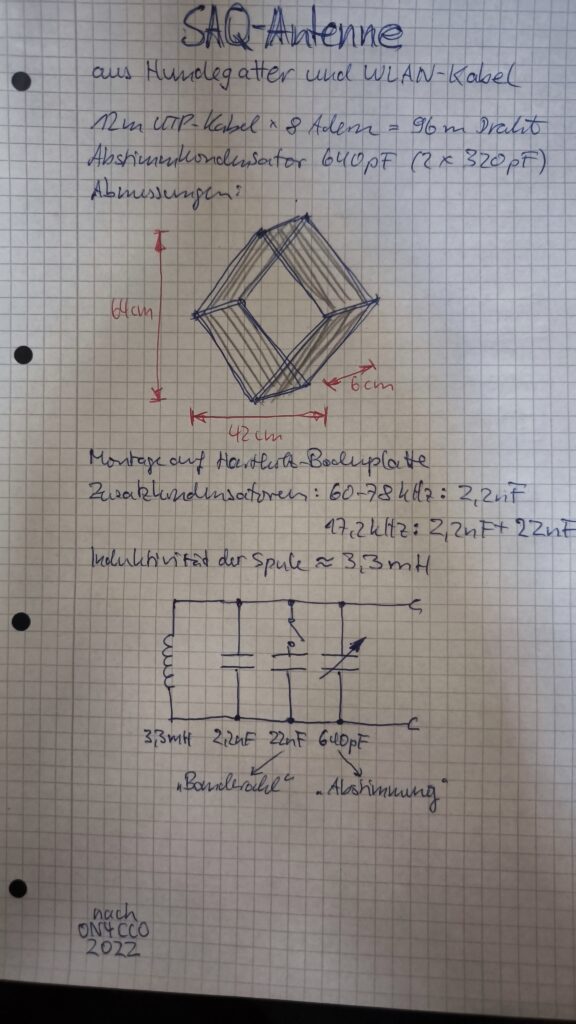 SAQ-Antenne
aus Hundegatter und WLAN-Kabel
12m UTP-Kabel × 8 Adern = 96m Draht
Abstimmkondensator 640pF (2 x 320pF)
Abmessungen:
64cm
6cm
42cm
Montage auf Hartholz-Bodenplatte
Zusatzkondensatoren: 60-78kHz: 2,2nF
17,2kHz: 2,2nF + 22nF
Induktivität der Spule ≈ 3,3mH
3,3mH 2,2nF 22nF 640pF
"Bandwahl" "Abstimmung"
nach
ON4CCO
2022